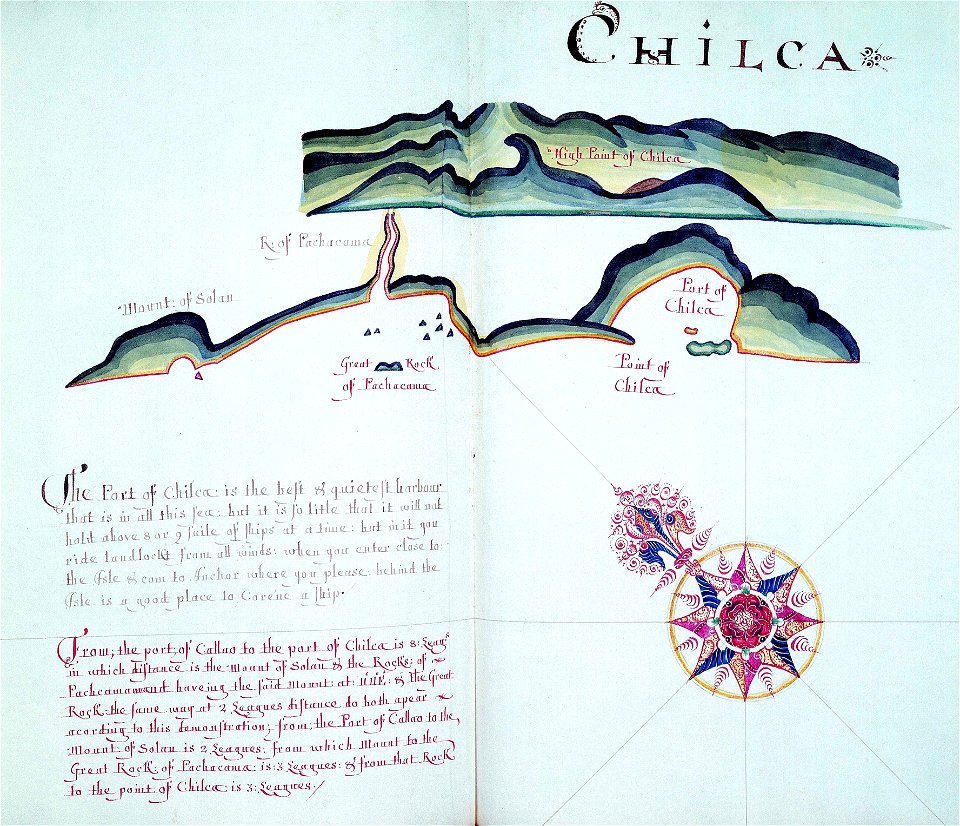 CHILCA
High Point of Chilca
R. of Pachacama
Mount: of Solan
Port of
Chilca
Great Rock
of Pachacama
Point of
Chilca
The Port of Chilca is the best & quietest harbour
that is in all this sea: but it is so litle that it will not
hold above 8 or 9 saile of ships at a time: but in it you
ride landlockt from all winds: when you enter close to:
the Isle & com to Anchor where you please. behind the
Isle is a good place to Carene a ship.
From, the port, of Callao to the port of Chilca is 8: Leags
in which distance is the Mount of Solan & the Rocks: of
Pachcamamant haveing the said Mount: at: NNE: & the Great
Rock the same way at 2 Leagues distance do both apear
acording to this demonstration; from, the Port of Callao to the,
Mount of Solan is 2 Leagues: from which Mount to the
Great Rock: of Pachacama: is: 3 Leagues: & from that Rock
to the point of Chilca is 3: Leagues.